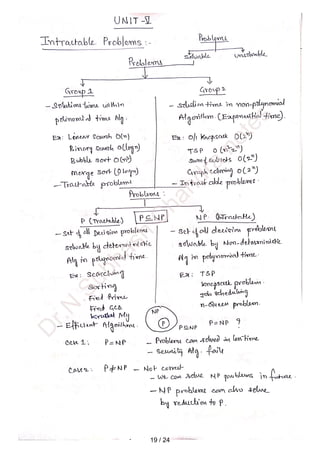 UNIT-V
Intractable Problems :-
Problems
Solvable unsolvable
Problems
Group 1
- Solutions time within
polinomial time Alg.
Ex: Linear Search O(n)
Binary Search O(logn)
Bubble Sort O(n²)
merge Sort O(logn)
- Tractable problems
Group 2
- solution time in non-polynomial
Algorithm (Exponential time).
Ex: 0/1 Knapsack O(2ⁿ)
TSP O(n²2ⁿ)
Sum of subsets O(2ⁿ)
Graph coloring O(2ⁿ)
- Intractable problems.
Problems :
P (Tractable)
P⊆NP
NP (Intractable)
- Set of all Decision problems
solvable by deterministic
Alg in polynomial time.
Ex: Searching
Sorting
Find Prime
Find GCD
Kruskal Alg
- Efficient Algorithms.
- Set of all decision problems
solvable by Non-deterministic
Alg in polynomial time.
Ex: TSP
knapsack problem.
job scheduling
n-Queen problem.
NP
P
P⊆NP
P=NP ?
Case 1: P=NP - Problems can solved in less time
- Security Alg. fails
Case 2: P≠NP - Not correct
- we can solve NP problems in future.
- NP problems can also solve
by reduction to P.
19 / 24